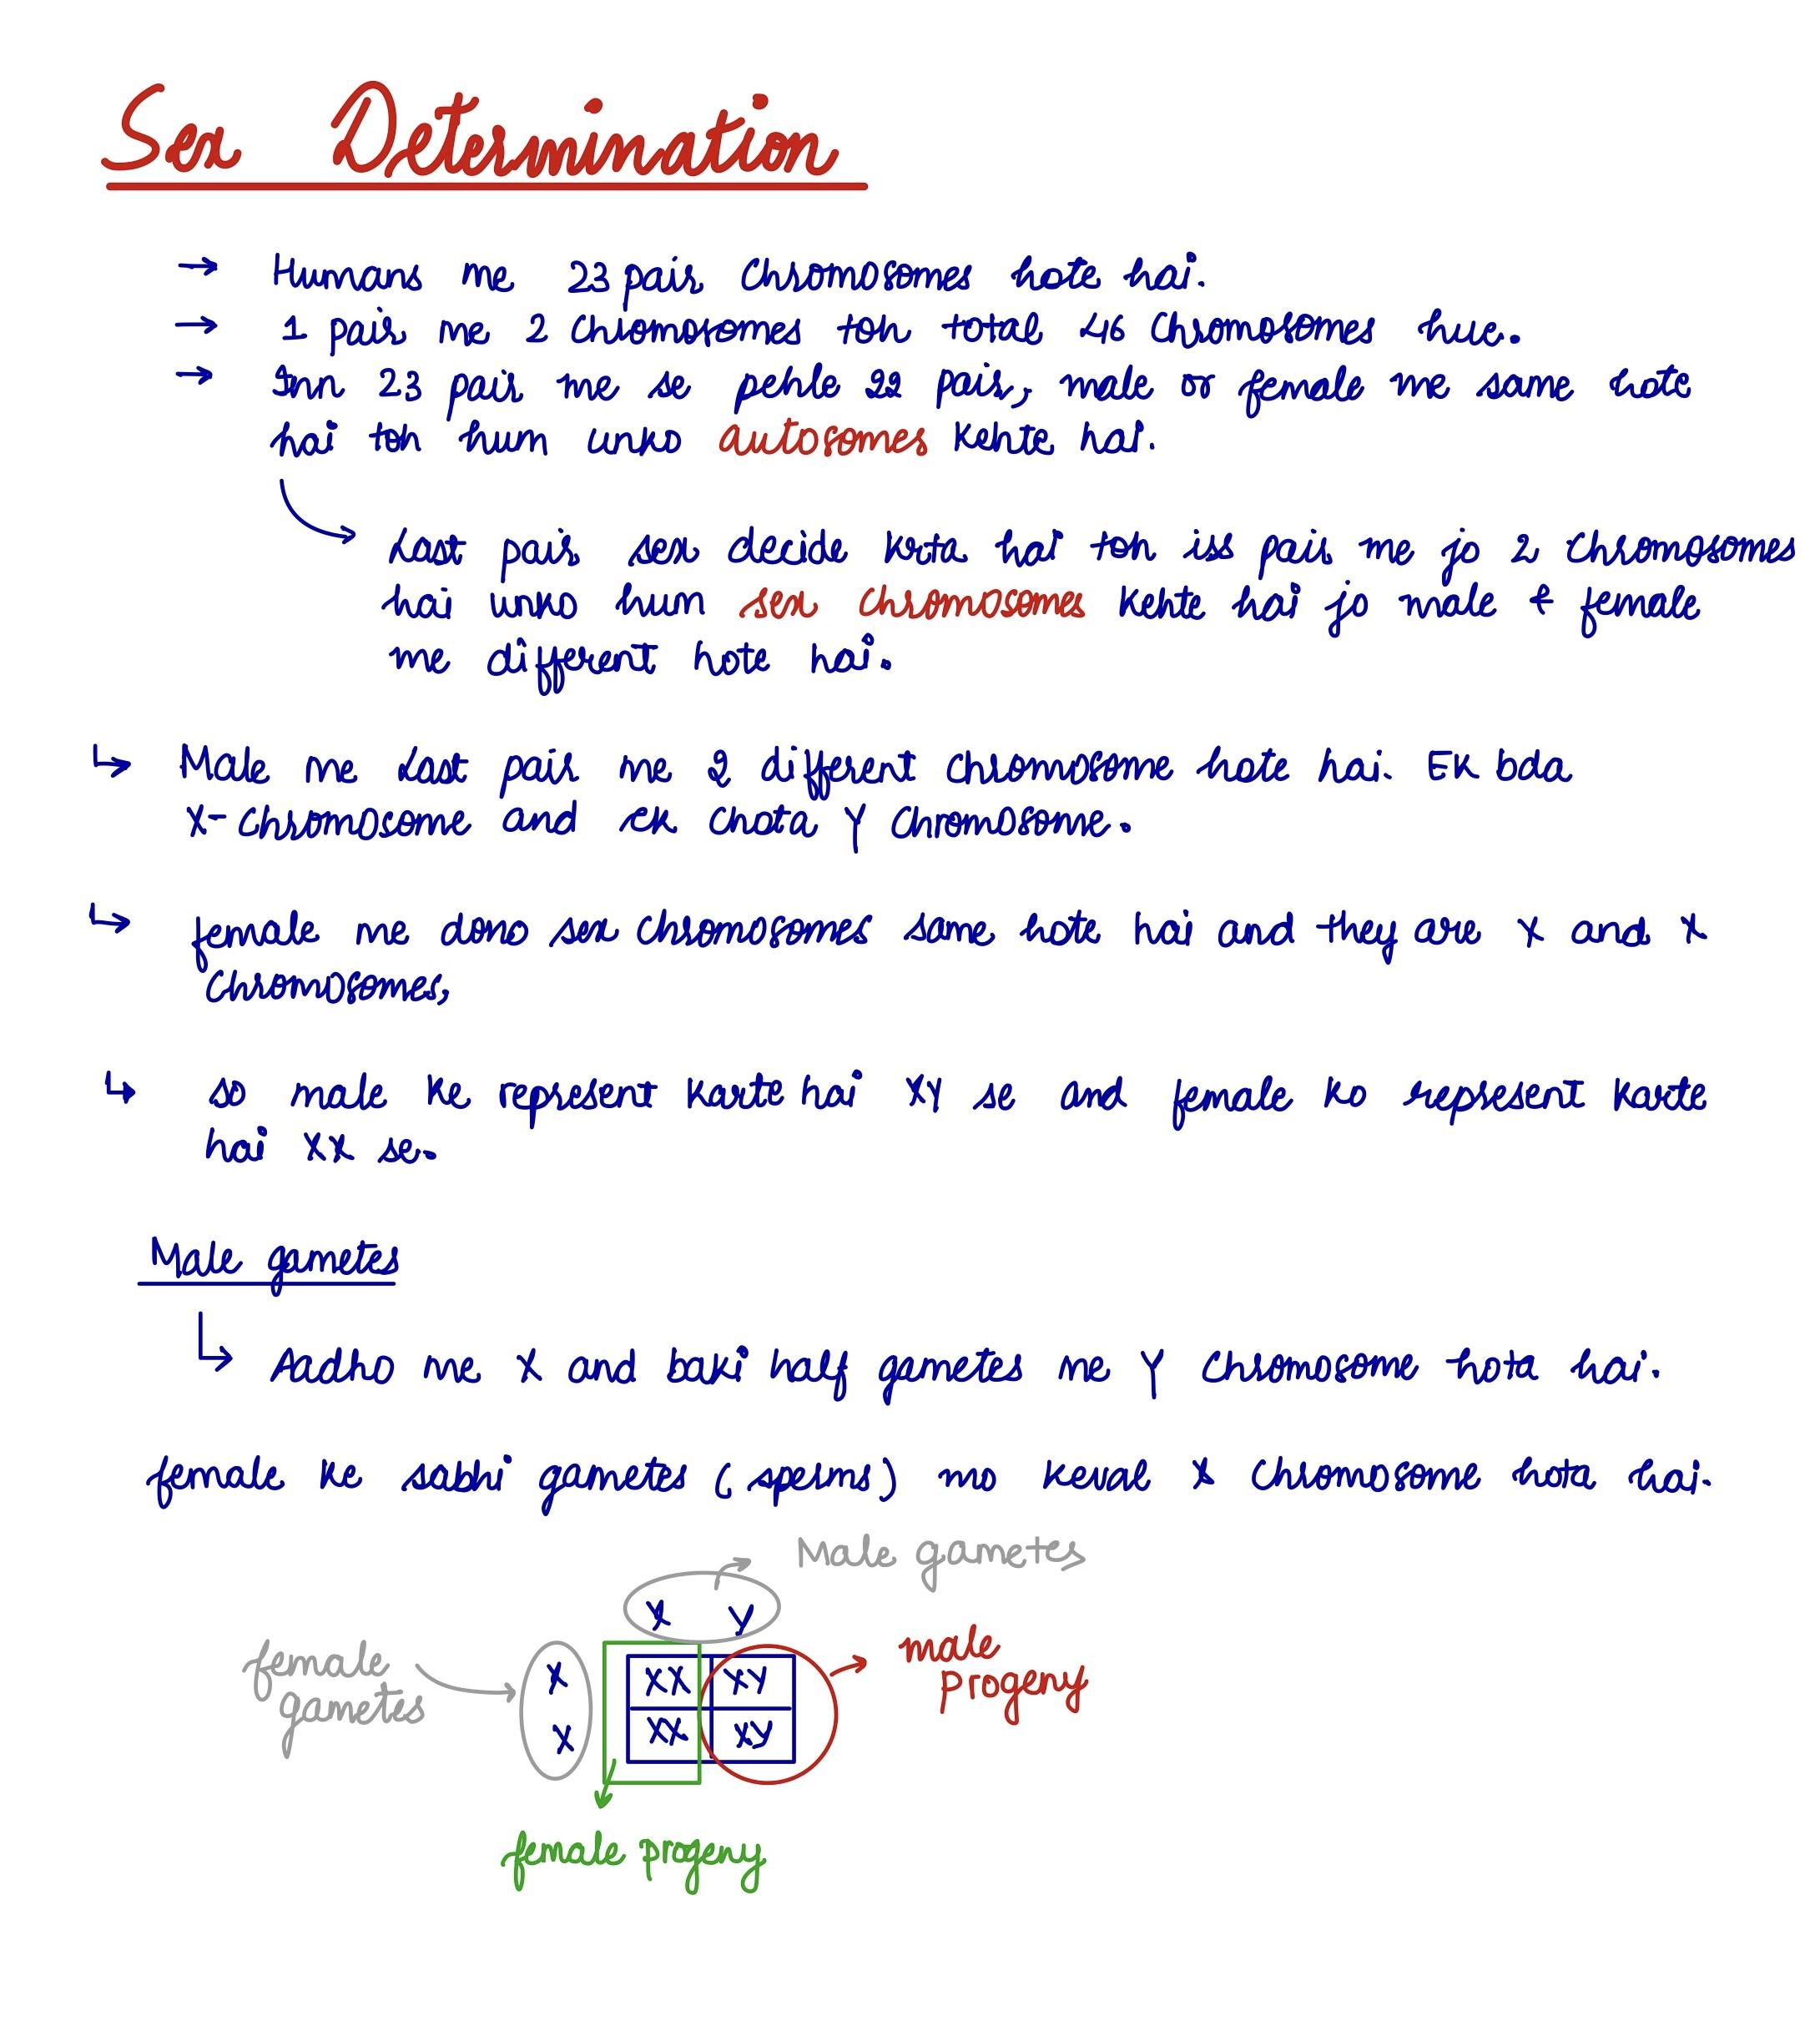 Sex Determination
→ Humans me 23 pair Chromosomes hote hai.
→ 1 pair me 2 Chromosomes toh total 46 Chromosomes hue.
→ Inn 23 pair me se pehle 22 pair, male or female me same hote
hai toh hum unko autosomes kehte hai.
Last pair sex decide krta hai toh iss pair me jo 2 Chromosomes
hai unko hum sex Chromosomes kehte hai jo male & female
me different hote hai.
↳ Male me Last pair me 2 different Chromosome hote hai. Ek bda
X-Chromosome and ek chota Y Chromosome.
↳ female me dono sex Chromosomes same hote hai and they are X and X
Chromosomes,
↳ so male ke represent karte hai XY se and female ko represent karte
hai XX se.
Male gametes
↳ Aadho me X and baki half gametes me Y Chromosome hota hai.
female ke sabhi gametes (sperms) mo keval X Chromosome hota hai.
Male gametes
X Y
female
gametes
X XX XY
X XX XY
male
progeny
female progeny